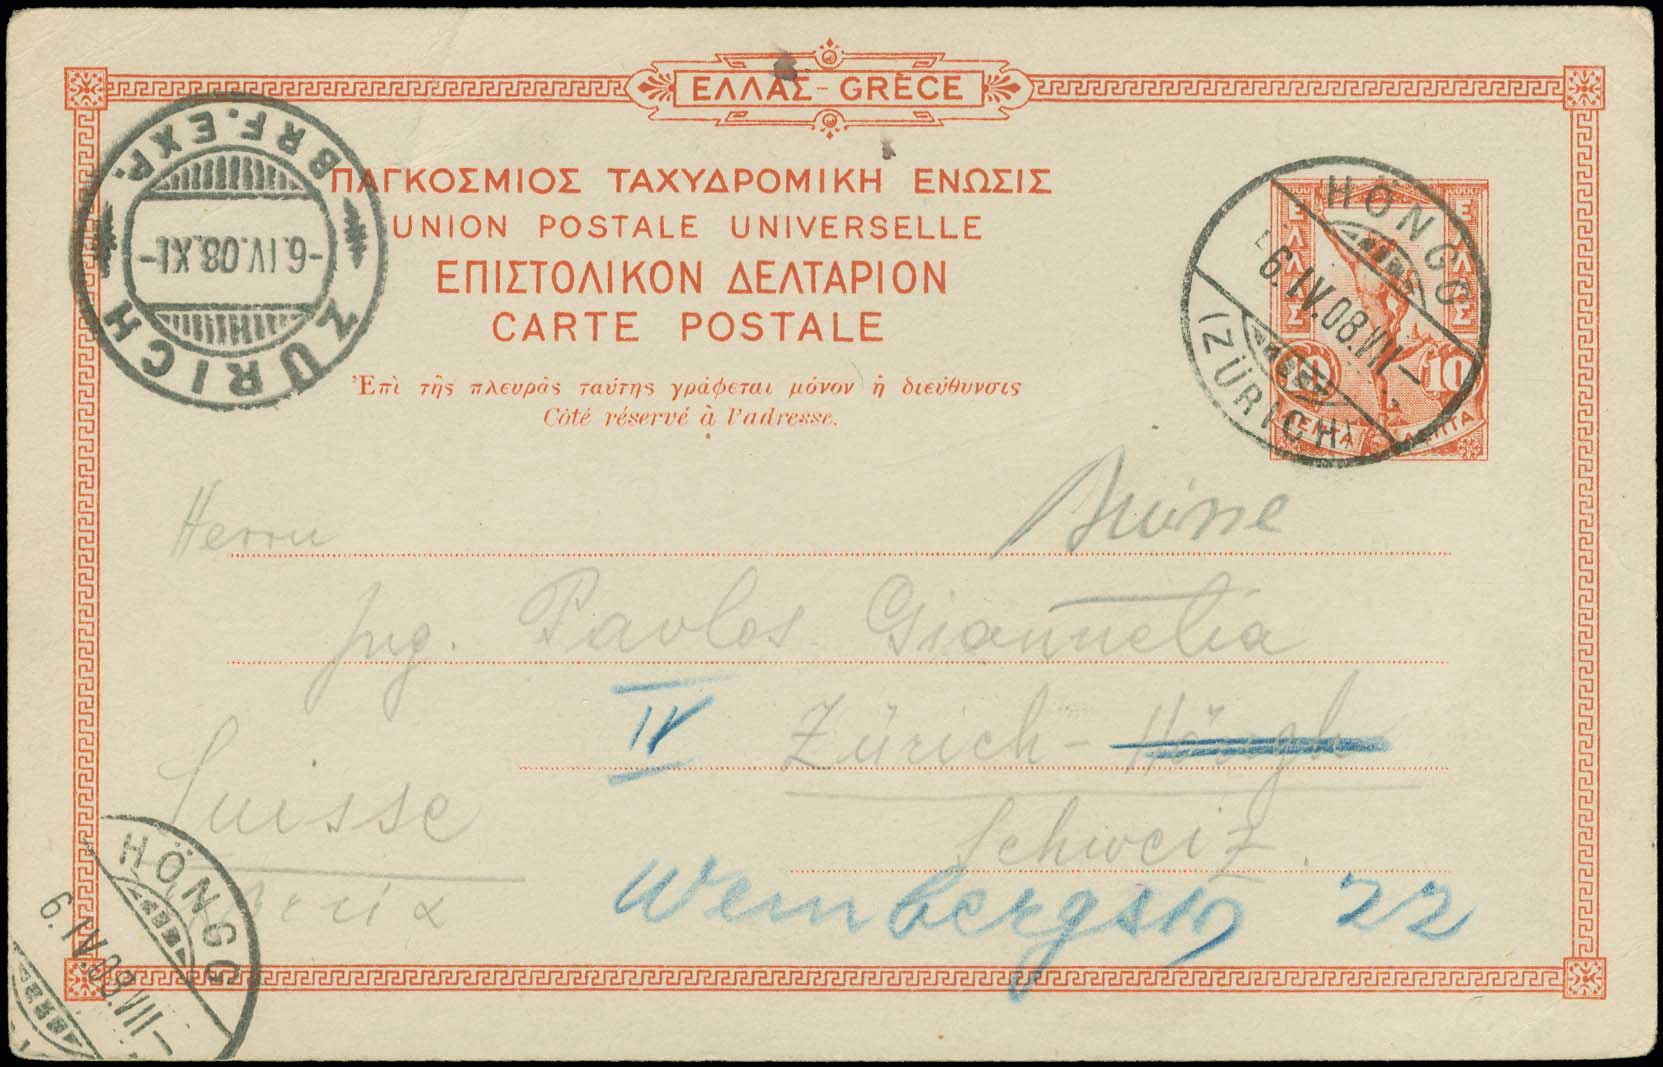 ΕΛΛΑΣ-GRÈCE
ΠΑΓΚΟΣΜΙΟΣ ΤΑΧΥΔΡΟΜΙΚΗ ΕΝΩΣΙΣ
UNION POSTALE UNIVERSELLE
ΕΠΙΣΤΟΛΙΚΟΝ ΔΕΛΤΑΡΙΟΝ
CARTE POSTALE
Ἐπὶ τῆς πλευρᾶς ταύτης γράφεται μόνον ἡ διεύθυνσις
Côté réservé à l'adresse.
ZÜRICH BRF. EXP.
-6.IV.08.XI-
ΕΛΛΑΣ ΕΛΛΑΣ
10 10
ΛΕΠΤΑ ΛΕΠΤΑ
HÖNGG
6.IV.08.VII-
(ZÜRICH)
Herrn
Ing. Pavlos Giannelia
IV Zürich-Höngh
Suisse
Schweiz.
Weinbergstr 22
HÖNGG
6.IV.08.VIII-